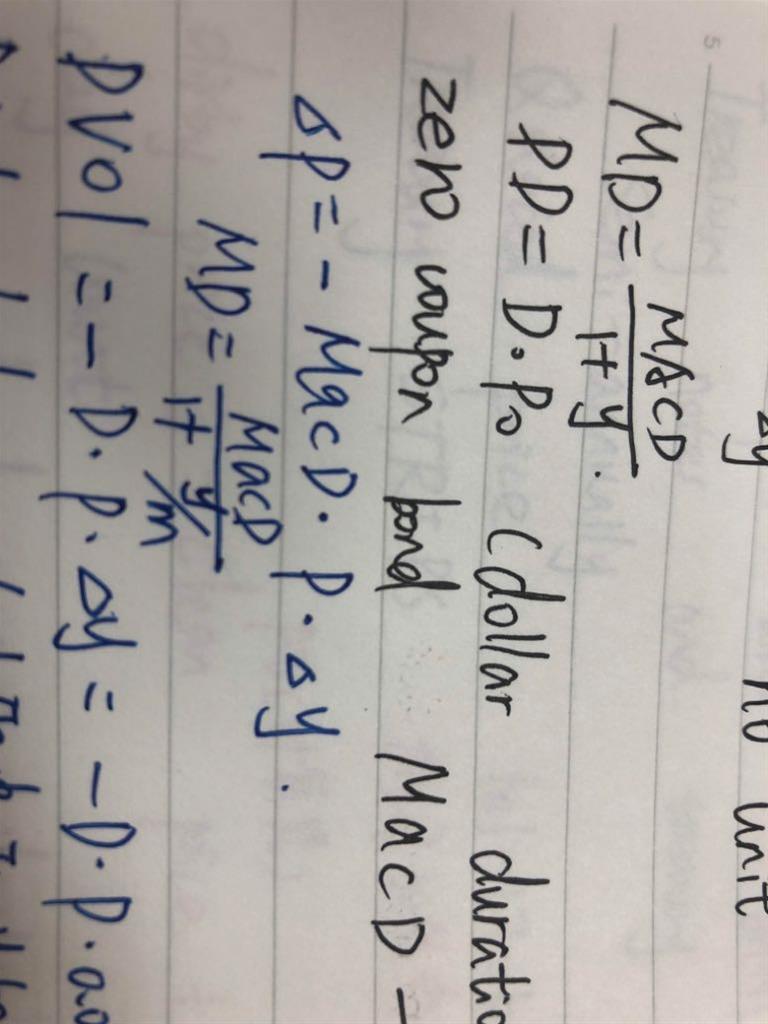 Δy no unit
MD = MACD / 1+y.
PD = D·P₀ (dollar
zero coupon bond MacD –
ΔP = – MacD· P· Δy.
MD = MacD / 1+ y/m
PV01 = – D. P. Δy = – D· P·